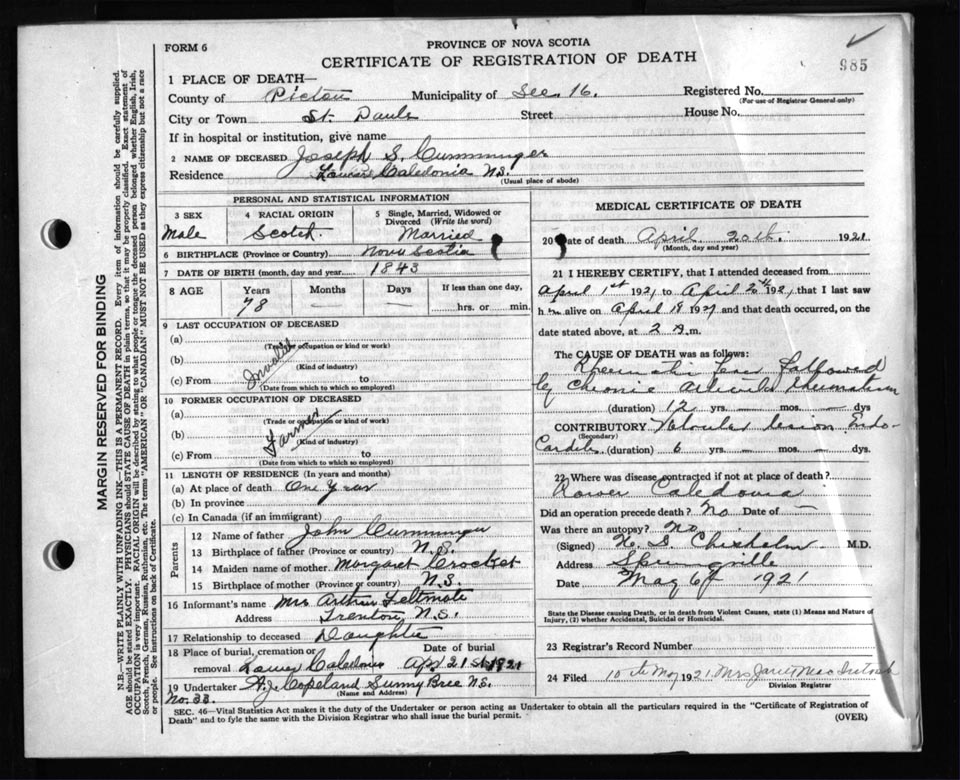 FORM 6
PROVINCE OF NOVA SCOTIA
CERTIFICATE OF REGISTRATION OF DEATH
985
1 PLACE OF DEATH—
County of Pictou Municipality of Sec 16. Registered No.
(For use of Registrar General only)
City or Town St. Pauls Street House No.
If in hospital or institution, give name
2 NAME OF DECEASED Joseph S. Cumminger
Residence Lower Caledonia N.S.
(Usual place of abode)
MARGIN RESERVED FOR BINDING
N.B.—WRITE PLAINLY WITH UNFADING INK—THIS IS A PERMANENT RECORD. Every item of information should be carefully supplied.
AGE should be stated EXACTLY. PHYSICIANS should STATE CAUSE OF DEATH in plain terms, so that it may be properly classified. Exact statement of
OCCUPATION is very important. RACIAL ORIGIN will be described by stating to what people or tongue the deceased person belonged whether English, Irish,
Scotch, French, German, Russian, Ruthenian, etc. The terms "AMERICAN" OR "CANADIAN" MUST NOT BE USED as they express citizenship but not a race
or people. See instructions on back of Certificate.
PERSONAL AND STATISTICAL INFORMATION
3 SEX 4 RACIAL ORIGIN 5 Single, Married, Widowed or
Divorced (Write the word)
Male Scotch Married
6 BIRTHPLACE (Province or Country) Nova Scotia
7 DATE OF BIRTH (month, day and year) 1843
8 AGE Years Months Days If less than one day,
78 — — hrs. or min.
9 LAST OCCUPATION OF DECEASED
(a)
(Trade or occupation or kind or work)
(b) Invalid
(Kind of industry)
(c) From to
(Date from which to which so employed)
10 FORMER OCCUPATION OF DECEASED
(a)
(Trade or occupation or kind of work)
(b) Farmer
(Kind of industry)
(c) From to
(Date from which to which so employed)
11 LENGTH OF RESIDENCE (In years and months)
(a) At place of death One Year
(b) In province
(c) In Canada (if an immigrant)
Parents
12 Name of father John Cumminger
13 Birthplace of father (Province or country) N.S.
14 Maiden name of mother Margaret Crocket
15 Birthplace of mother (Province or country) N.S.
16 Informant's name Mrs Arthur
Address Trenton, N.S.
17 Relationship to deceased Daughter
18 Place of burial, cremation or Date of burial
removal Lower Caledonia Apr 21st 1921
19 Undertaker A.J. Copeland Sunny Brae N.S.
(Name and Address)
No. 33.
MEDICAL CERTIFICATE OF DEATH
20 Date of death April 20th. 1921
(Month, day and year)
21 I HEREBY CERTIFY, that I attended deceased from
April 1st 1921 to April 20th 1921, that I last saw
him alive on April 19 1921 and that death occurred, on the
date stated above, at 2 A.m.
The CAUSE OF DEATH was as follows:
Rheumatic fever followed
by Chronic Articular rheumatism
(duration) 12 yrs. — mos. — dys
CONTRIBUTORY Valvular lesion Endo-
(Secondary)
Carditis (duration) 6 yrs. — mos. — dys.
22 Where was disease contracted if not at place of death?
Lower Caledonia
Did an operation precede death? No Date of —
Was there an autopsy? No.
(Signed) Chisholm M.D.
Address Springville
Date May 6th 1921
State the Disease causing Death, or in death from Violent Causes, state (1) Means and Nature of
Injury, (2) whether Accidental, Suicidal or Homicidal.
23 Registrar's Record Number
24 Filed 10th May 1921 Mrs Janet MacIntosh
Division Registrar
SEC. 46—Vital Statistics Act makes it the duty of the Undertaker or person acting as Undertaker to obtain all the particulars required in the "Certificate of Registration of
Death" and to fyle the same with the Division Registrar who shall issue the burial permit.
(OVER)